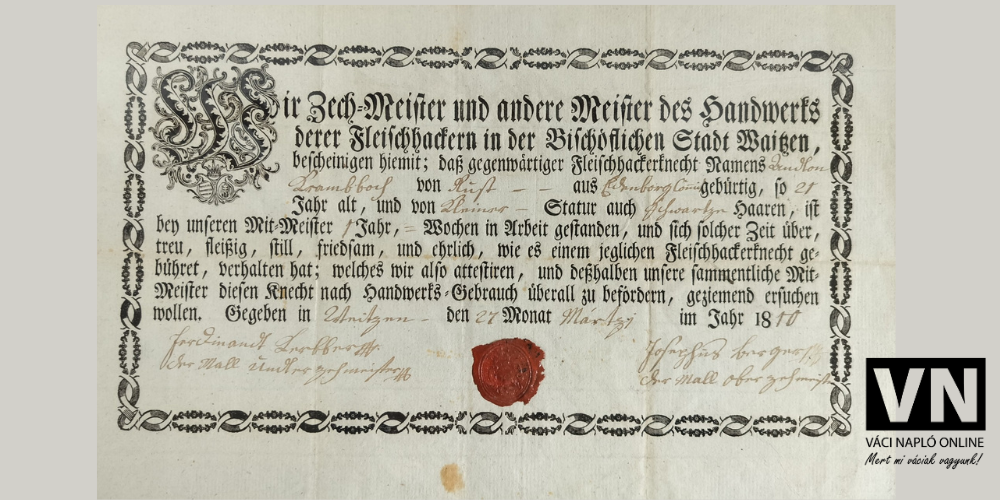 Wir Zech-Meister und andere Meister des Handwerks
derer Fleischhackern in der Bischöflichen Stadt Waitzen,
bescheinigen hiemit; daß gegenwärtiger Fleischhackerknecht Namens
von Rust - - aus gebürtig, so 21
Jahr alt, und von Kleiner - Statur auch schwartze Haaren, ist
bey unseren Mit-Meister 1 Jahr, = Wochen in Arbeit gestanden, und sich solcher Zeit über,
treu, fleißig, still, friedsam, und ehrlich, wie es einem jeglichen Fleischhackerknecht ge-
bühret, verhalten hat; welches wir also attestiren, und deßhalben unsere sammentliche Mit-
Meister diesen Knecht nach Handwerks-Gebrauch überall zu befördern, geziemend ersuchen
wollen. Gegeben in Weitzen - den 27 Monat Martzy im Jahr 1810
Ferdinandt
der Mall Undter zehmeister
Josephus berger
der Mall ober zehmeister
VN
VÁCI NAPLÓ ONLINE
Mert mi váciak vagyunk!